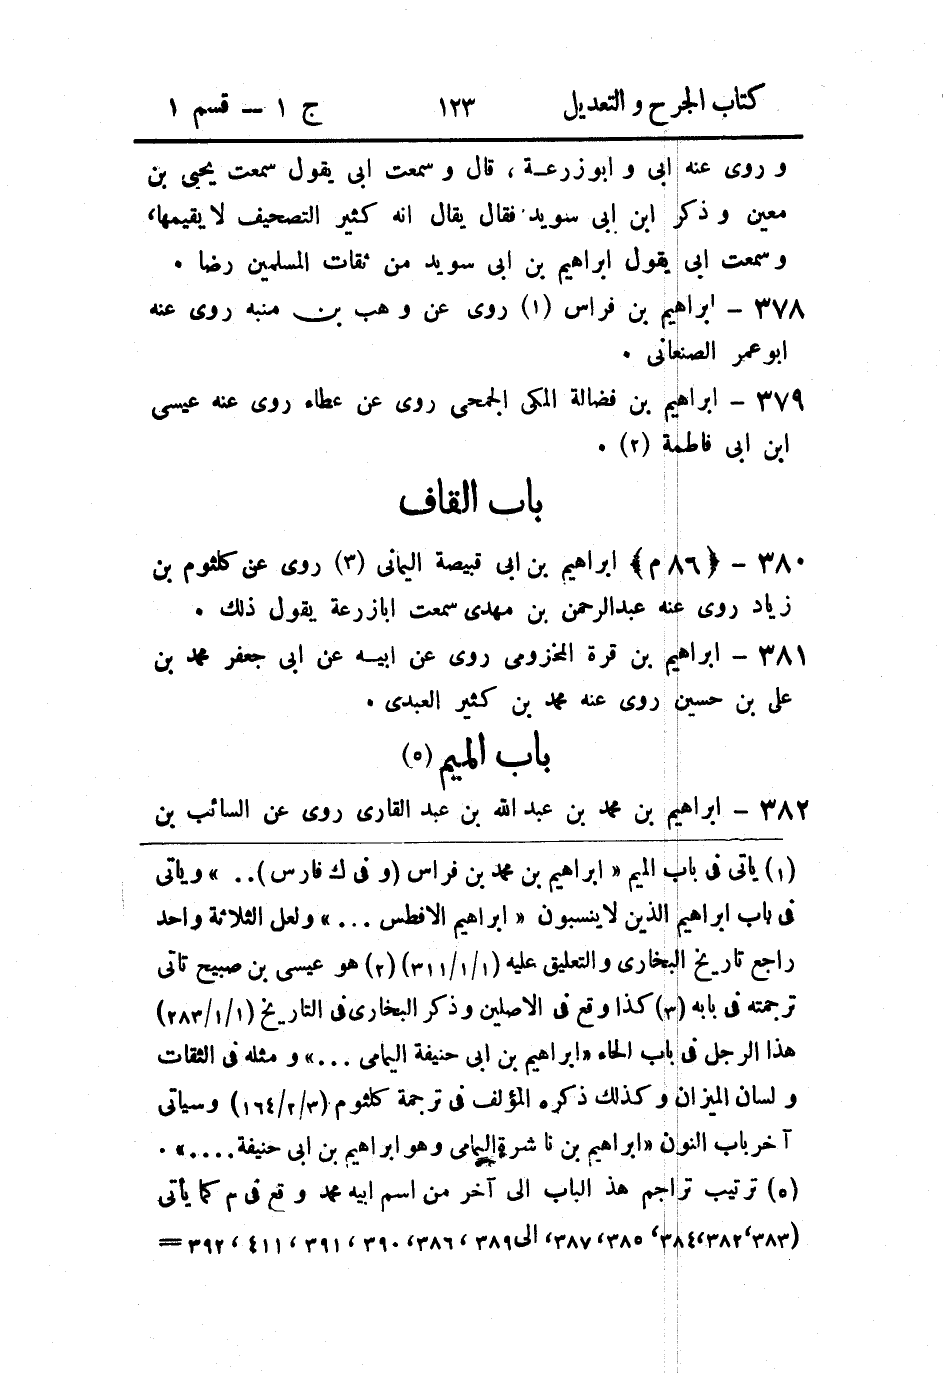 كتاب الجرح و التعديل ١٢٣ ج ١ – قسم ١
و روى عنه ابى و ابو زرعـة ، قال و سمعت ابى يقول سمعت يحيى بن
معين و ذكر ابن ابى سويد فقال يقال انه كثير التصحيف لا يقيمها،
و سمعت ابى يقول ابراهيم بن ابى سويد من ثقات المسلمين رضا .
٣٧٨ – ابراهيم بن فراس (١) روى عن وهب بن منبه روى عنه
ابو عمر الصنعانى .
٣٧٩ – ابراهيم بن فضالة المكى الجمحى روى عن عطاء روى عنه عيسى
ابن ابى فاطمة (٢) .
باب القاف
٣٨٠ – ﴿٨٦ م﴾ ابراهيم بن ابى قبيصة اليمانى (٣) روى عن كلثوم بن
زياد روى عنه عبدالرحمن بن مهدى سمعت ابا زرعة يقول ذلك .
٣٨١ – ابراهيم بن قرة المخزومى روى عن ابيـه عن ابى جعفر محمد بن
على بن حسين روى عنه محمد بن كثير العبدى .
باب الميم (٥)
٣٨٢ – ابراهيم بن محمد بن عبد الله بن عبد القارى روى عن السائب بن
(١) ياتى فى باب الميم « ابراهيم بن محمد بن فراس (و فى ك فارس) . . » و ياتى
فى باب ابراهيم الذين لا ينسبون « ابراهيم الافطس . . . » و لعل الثلاثة واحد
راجع تاريخ البخارى و التعليق عليه (٣١١/١/١) (٢) هو عيسى بن صبيح تاتى
ترجمته فى بابه (٣) كذا وقع فى الاصلين و ذكر البخارى فى التاريخ (٢٨٣/١/١)
هذا الرجل فى باب الحاء « ابراهيم بن ابى حنيفة اليمامى . . . » و مثله فى الثقات
و لسان الميزان و كذلك ذكره المؤلف فى ترجمة كلثوم (١٦٤/٢/٣) و سياتى
آخر باب النون « ابراهيم بن ناشرة اليمامى و هو ابراهيم بن ابى حنيفة . . . . » .
(٥) ترتيب تراجم هذ الباب الى آخر من اسم ابيه محمد وقع فى م كما يأتى
(٣٨٣، ٣٨٢، ٣٨٤، ٣٨٥، ٣٨٧، الى ٣٨٩، ٣٨٦، ٣٩٠، ٣٩١، ٤١١، ٣٩٢ =